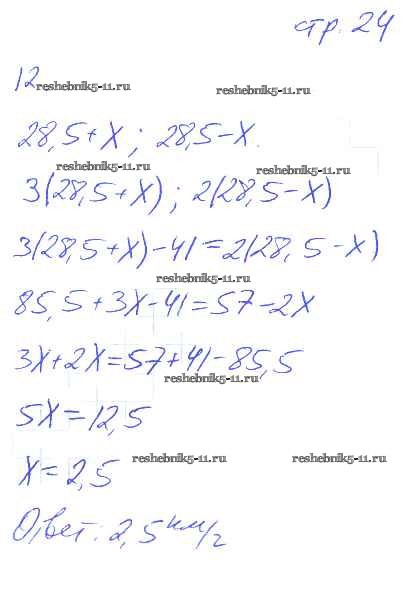 стр. 24
12
reshebnik5-11.ru reshebnik5-11.ru
28,5+x; 28,5-x.
reshebnik5-11.ru reshebnik5-11.ru
3(28,5+x); 2(28,5-x)
3(28,5+x)-41=2(28,5-x)
reshebnik5-11.ru
85,5+3x-41=57-2x
3x+2x=57+41-85,5
reshebnik5-11.ru
5x=12,5
x=2,5
reshebnik5-11.ru reshebnik5-11.ru
Ответ: 2,5 км/г